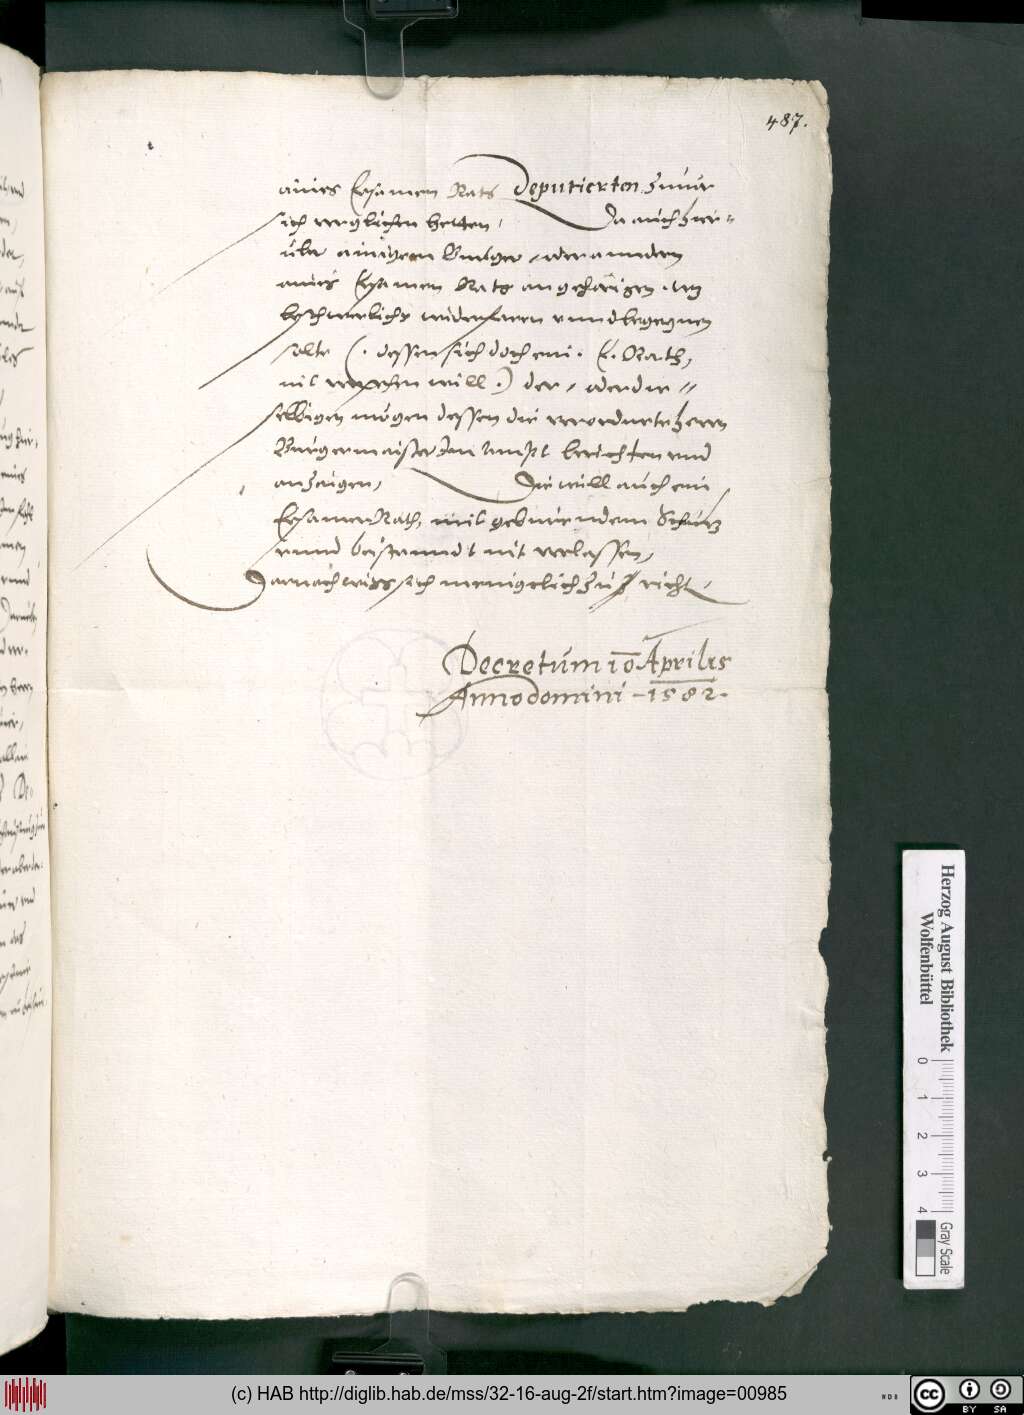 487.
aines Ersamen Rats Deputierten zuuor
sich verglichen hetten, Da auch hier=
über ainigem Burger, oder anndern
aines Ersamen Rats angehörigen, was
beschwerlichs widerfaren vnnd begegnen
solte (. dessen sich doch ein. E. Rath,
nit versehen will .) der, oder die=
selbigen mögen dessen die verordnete herrn
Burgermaister Im Ampt berichten vnd
anzaigen, Die will auch ein
Ersamer Rath, mit geburendem Schutz
vnnd beistanndt nit verlassen,
Darnach wiss sich menigelich zu richt.
Decretum 10 Aprilis
Anno domini - 1582.
Herzog August Bibliothek
Wolfenbüttel
0 1 2 3 4
Gray Scale
(c) HAB http://diglib.hab.de/mss/32-16-aug-2f/start.htm?image=00985
WDB
cc BY SA